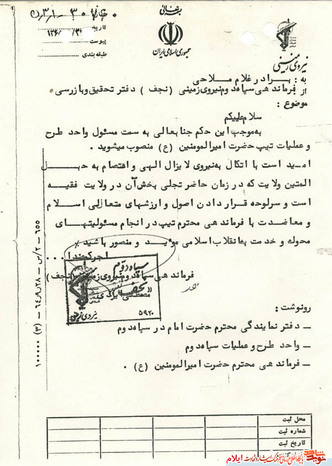 بسمه‌تعالی
تاریخ
پیوست
طبقه‌بندی
جمهوری اسلامی ایران
نیروی زمینی
به : برادر غلام ملاحی
از : فرماندهی سپاه دوم نیروی زمینی ( نجف ) دفتر تحقیق و بازرسی
موضوع :
سلام علیکم
به‌موجب این حکم جنابعالی به سمت مسئول واحد طرح
و عملیات تیپ حضرت امیرالمومنین (ع) منصوب میشوید .
امید است با اتکال به‌نیروی لایزال الهی و اعتصام به حبل
المتین ولایت که در زمان حاضر تجلی بخش‌آن در ولایت فقیه
است و سرلوحه قرار دادن اصول و ارزشهای متعالی اسلام
و معاضدت با فرماندهی محترم تیپ در انجام مسئولیتهای
محوله و خدمت به‌انقلاب اسلامی موید و منصور باشید .
اجرکم‌عندا...
فرماندهی سپاه دوم نیروی زمینی (نجف)
سپاه دوم
نجف
۵۹۲۰
نیروی زمینی
رونوشت :
– دفتر نمایندگی محترم حضرت امام در سپاه دوم
– واحد طرح و عملیات سپاه دوم
– فرماندهی محترم حضرت امیرالمومنین (ع) .
محل ثبت
شماره ثبت
تاریخ ثبت
ایلام